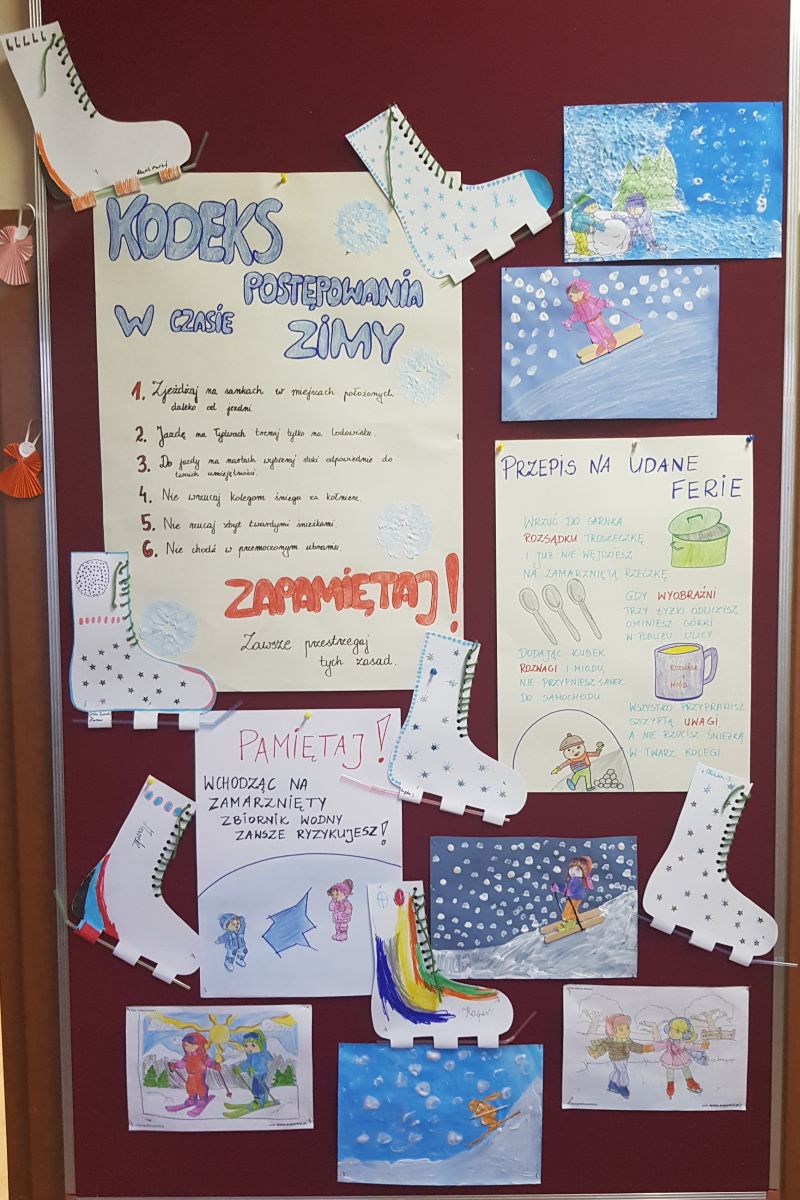 KODEKS
POSTĘPOWANIA
W CZASIE
ZIMY
1. Zjeżdżaj na sankach w miejscach położonych
daleko od jezdni
2. Jazdę na łyżwach trenuj tylko na lodowisku.
3. Do jazdy na nartach wybieraj stoki odpowiednie do
twoich umiejętności.
4. Nie wrzucaj kolegom śniegu za kołnierz.
5. Nie rzucaj zbyt twardymi śnieżkami.
6. Nie chodź w przemoczonym ubraniu.
ZAPAMIĘTAJ!
Zawsze przestrzegaj
tych zasad.
PRZEPIS NA UDANE
FERIE
WRZUĆ DO GARNKA
ROZSĄDKU TROSZECZKĘ
I JUŻ NIE WEJDZIESZ
NA ZAMARZNIĘTĄ RZECZKĘ
GDY WYOBRAŹNI
TRZY ŁYŻKI ODLICZYSZ
OMINIESZ GÓRKI
W POBLIŻU ULICY
DODAJĄC KUBEK
ROZWAGI I MIODU,
NIE PRZYPNIESZ SANEK
DO SAMOCHODU
ROZWAGA
I
MIÓD
WSZYSTKO PRZYPRAWISZ
SZCZYPTĄ UWAGI
A NIE RZUCISZ ŚNIEŻKĄ
W TWARZ KOLEGI
PAMIĘTAJ!
WCHODZĄC NA
ZAMARZNIĘTY
ZBIORNIK WODNY
ZAWSZE RYZYKUJESZ!